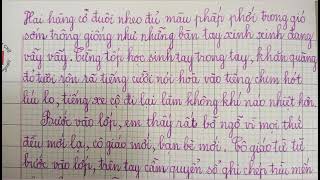 Hai hàng cờ đuôi nheo đủ màu phấp phới trong gió
sớm trông giống như những bàn tay xinh xinh đang
vẫy vẫy. Từng tốp học sinh tay trong tay, khăn quàng
đỏ tươi rộn rã tiếng cười nói hòa vào tiếng chim hót
líu lo, tiếng xe cộ đi lại làm không khí náo nhiệt hơn.
Bước vào lớp, em thấy rất bỡ ngỡ vì mọi thứ
đều mới lạ, cô giáo mới, bạn bè mới. Cô giáo từ từ
bước vào lớp, trên tay cầm quyển sổ ghi chép trìu mến